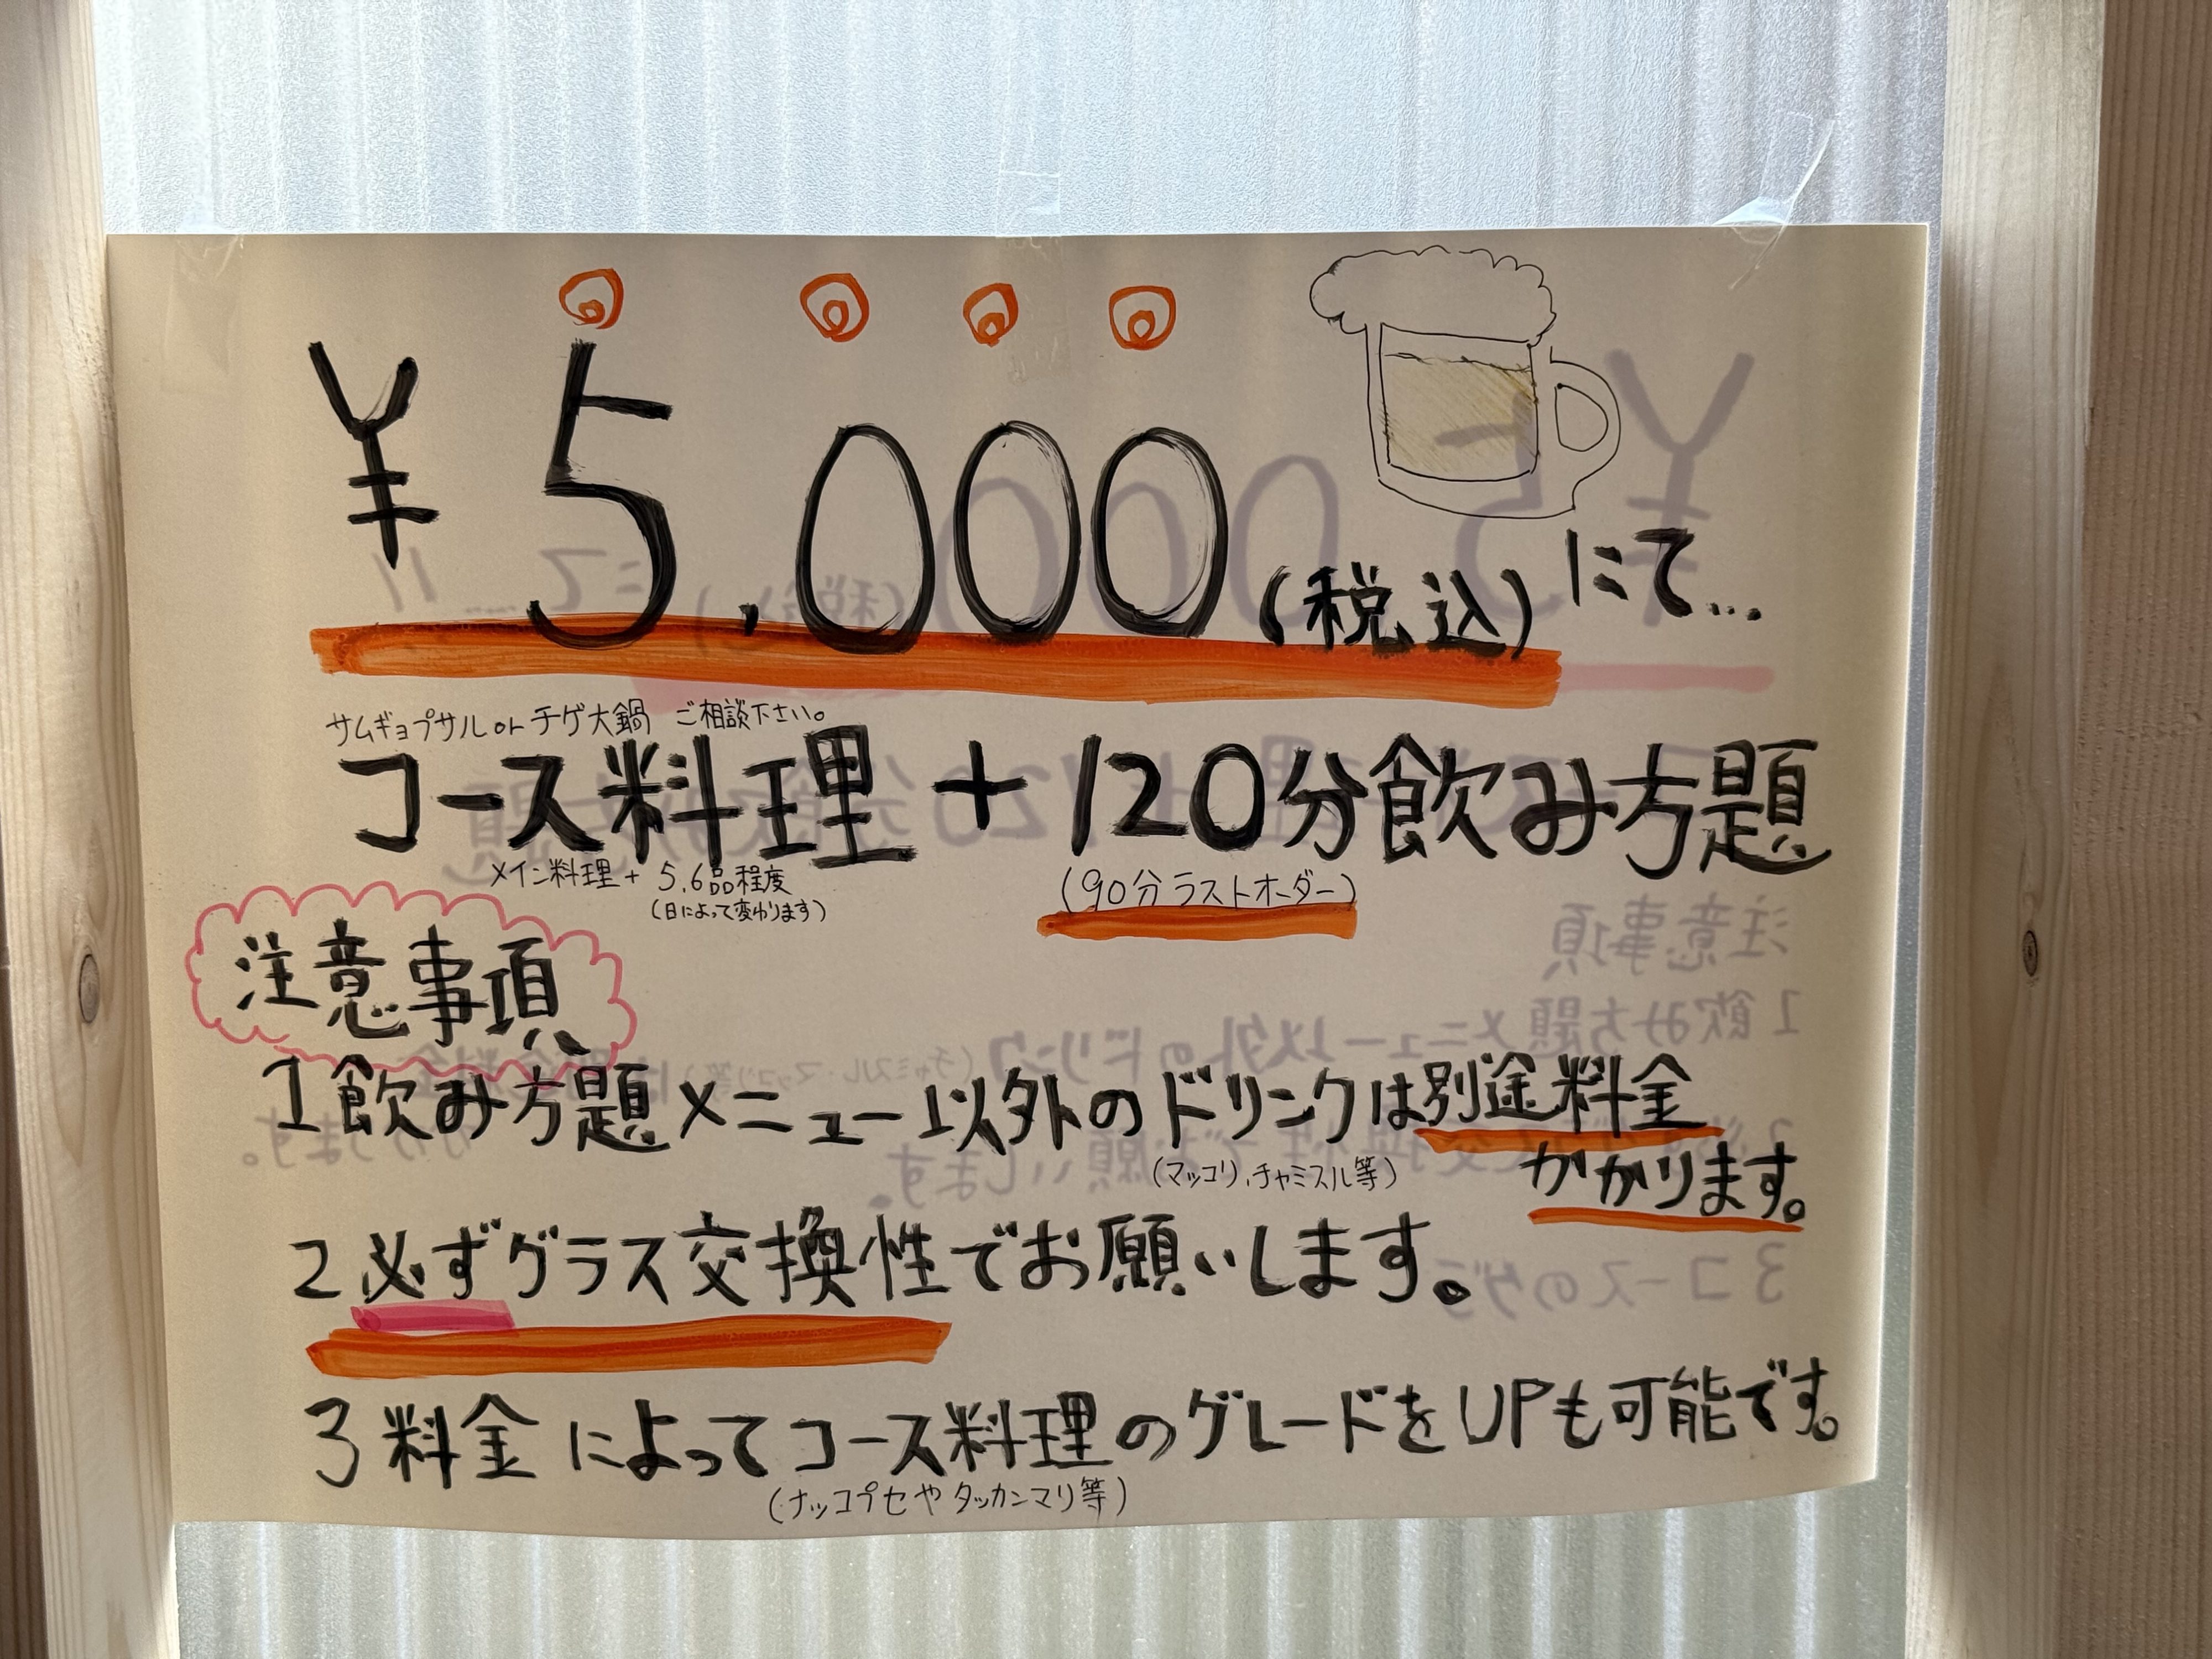 ¥5,000(税込)にて...
サムギョプサル or チゲ大鍋 ご相談下さい。
コース料理+120分飲み方題
メイン料理+5,6品程度
(90分ラストオーダー)
(日によって変わります)
注意事項
1 飲み方題メニュー以外のドリンクは別途料金
(マッコリ、チャミスル等)
かかります。
2 必ずグラス交換性でお願いします。
3 料金によってコース料理のグレードをUPも可能です。
(ナッコプセやタッカンマリ等)